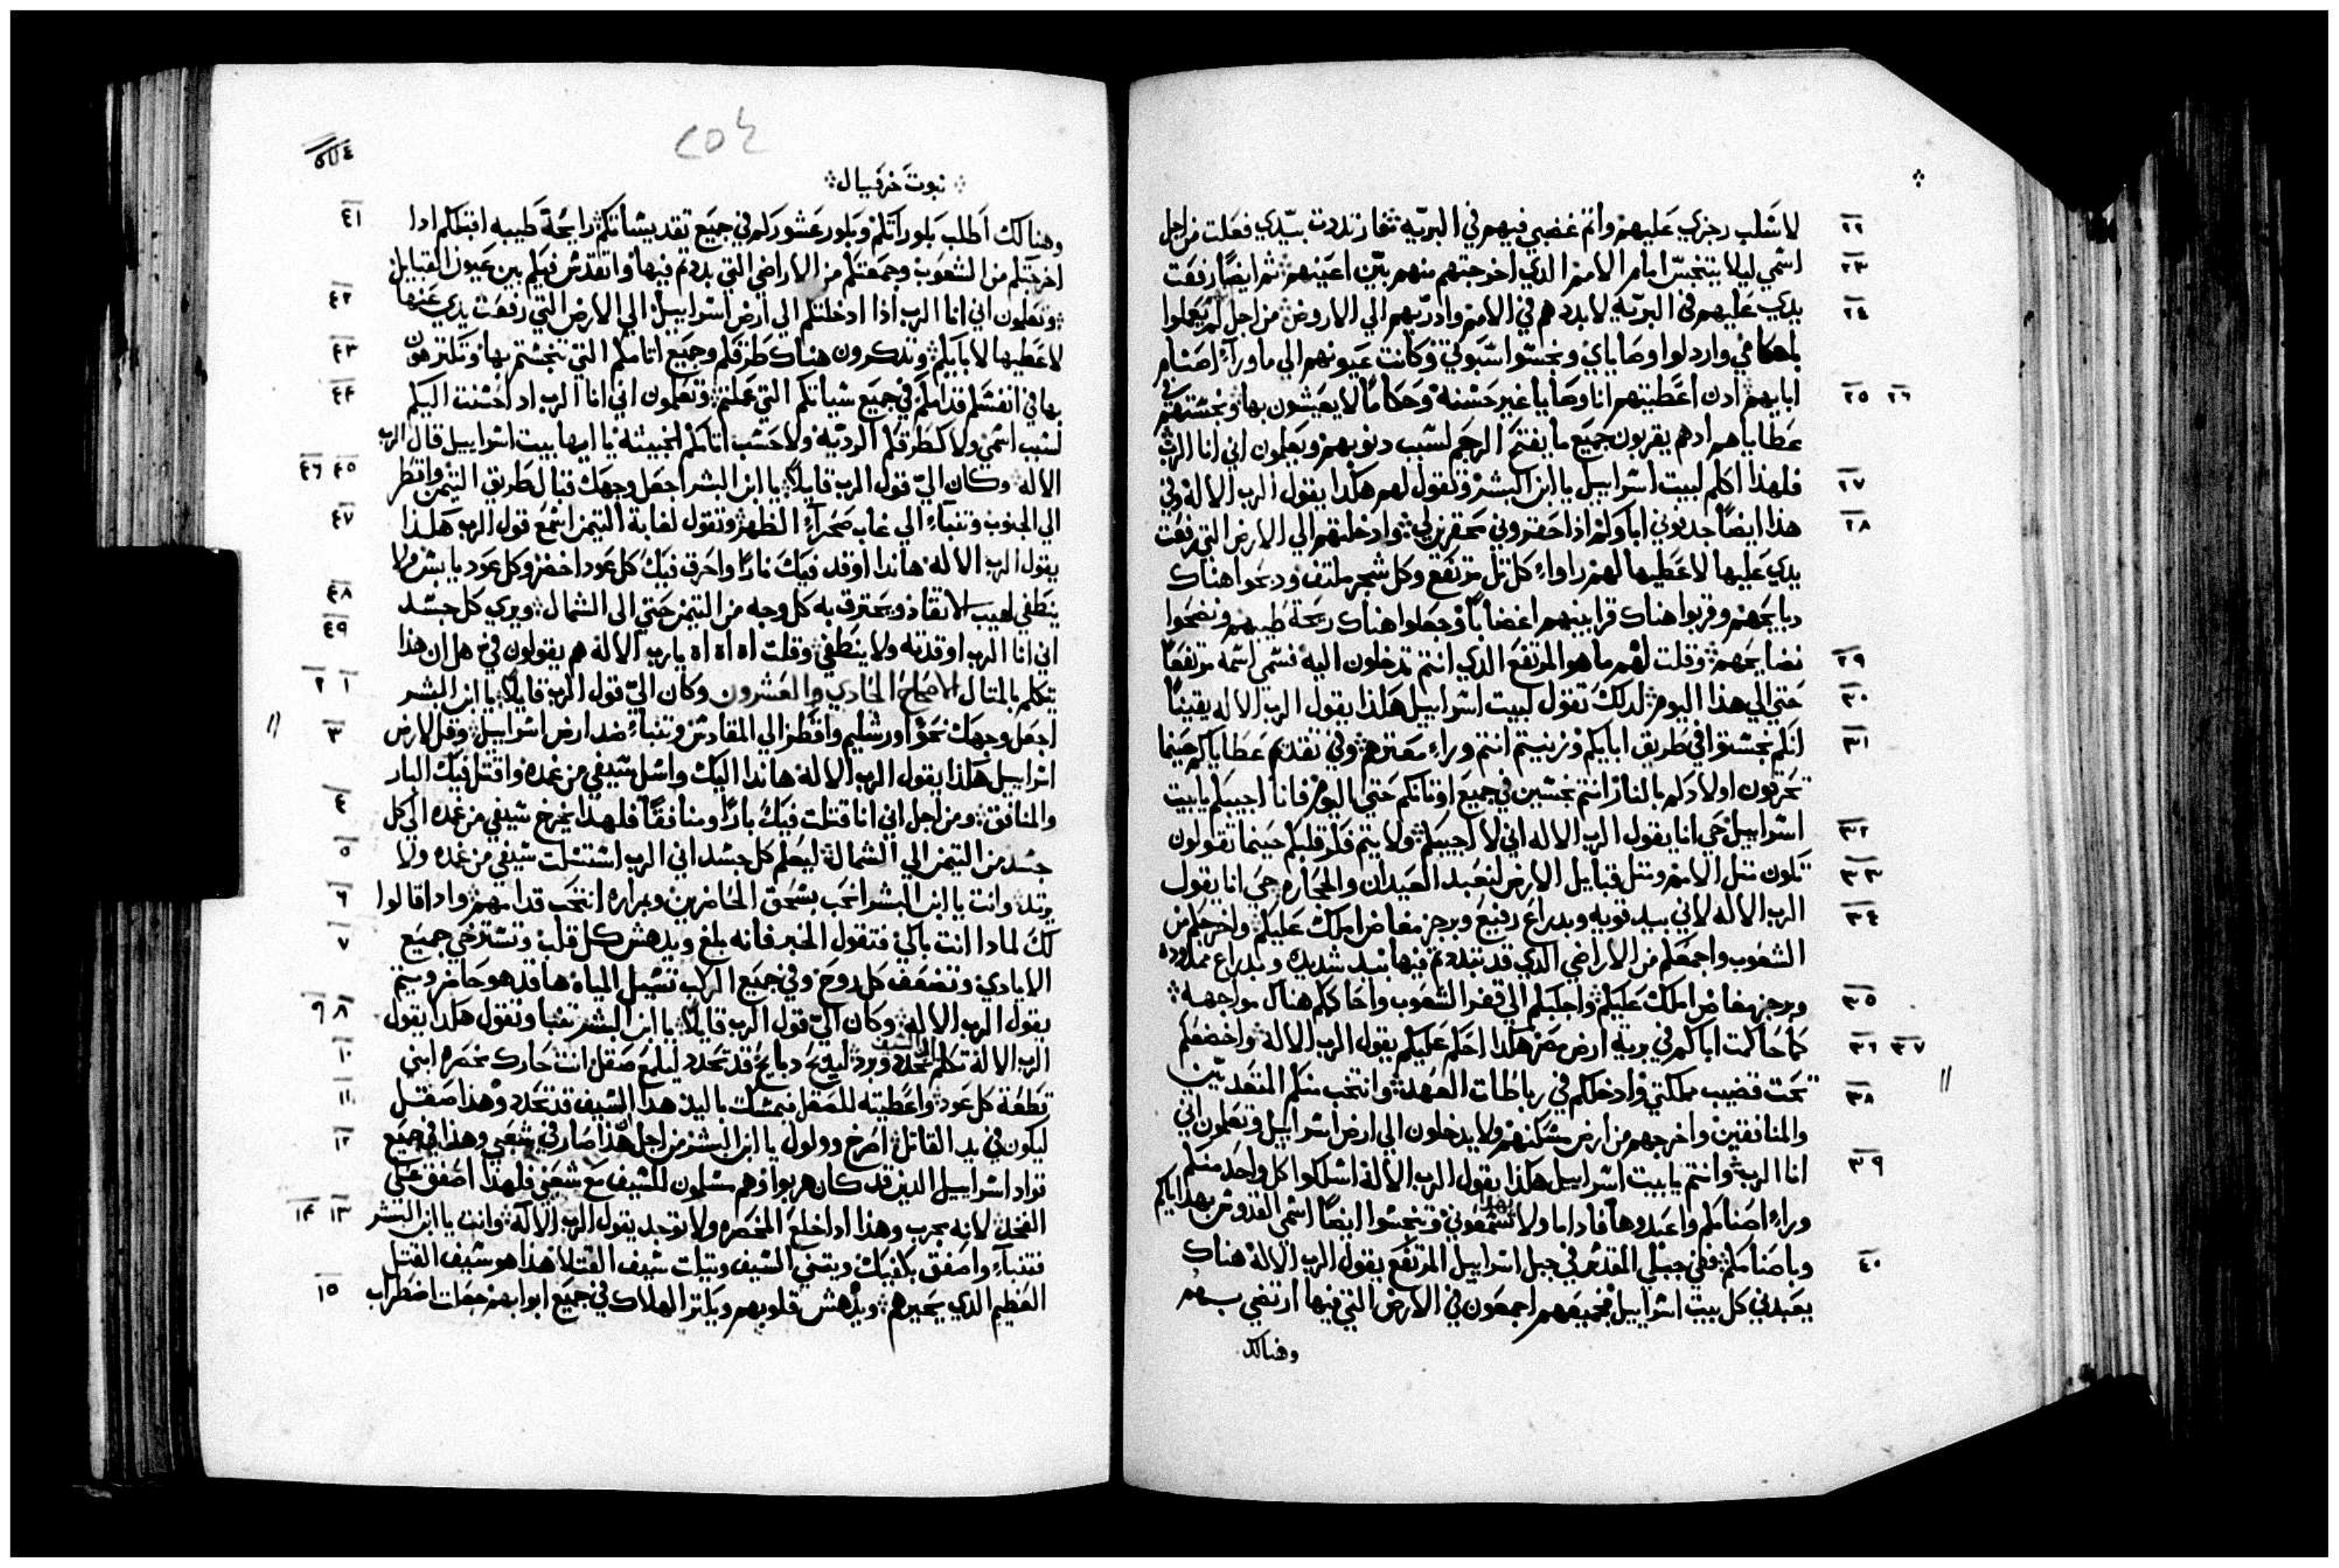 لاسلب رجزي عليهم واتم غضبي فيهم في البريه ثم ارتددت بيدي فعلت من اجل
اسمي ليلا يتنجس امام الامم الدي اخرجتهم منهم بين اعينهم ثم ايضا رفعت
يدي عليهم في البريه لابددهم في الامم وادريهم الي الاروض من اجل لم يعملوا
باحكامي واردلوا وصاياي ونجسوا سبوتي وكانت عيونهم الي ماوراء اصنام
ابايهم ادن اعطيتهم انا وصايا غير حسنه وحكاما لا يعيشون بها ونجستهم في
عطاياهم ادهم يقربون جميع ما يفتح الرحم لسبب دنوبهم ويعلمون اني انا الرب
فلهدا اكلم لبيت اسراييل يا ابن البشر وتقول لهم هكدا يقول الرب الاله وفي
هدا ايضا جدفوني اباوكم اذا حقروني محقرين لي وادخلتهم الي الارض التي رفعت
يدي عليها لاعطيها لهم راواء كل تل مرتفع وكل شجر ملتف ودبحوا هناك
دبايحهم وقربوا هناك قرابينهم اغضابا وجعلوا هناك ريحة طيبهم ونضحوا
نضايحهم وقلت لهم ما هو المرتفع الدي انتم تدخلون اليه فسمي اسمه مرتفعا
حتي الي هدا اليوم لدلك تقول لبيت اسراييل هكدا يقول الرب الاله يقينا
انكم نجستوا في طريق ابايكم وزنيتم انتم وراء معترهم وفي تقديم عطاياكم حينما
تحرقون اولادكم بالنار انتم نجسين في جميع اوتانكم حتي اليوم فانا اجيبكم يابيت
اسراييل حي انا يقول الرب الاله اني لا اجيبكم ولا يتم فكر قلبكم حينما تقولون
نكون متل الامم ومتل قبايل الارض لنعبد العيدان والحجاره حي انا يقول
الرب الاله لاني بيد قويه وبدراع رفيع وبرجز مفاض املك عليكم واخرجكم من
الشعوب واجمعكم من الاراضي الدي قد تبددتم فيها بيد شديده وبدراع ممدوده
وبرجز مفاض املك عليكم واجلبكم الي قفر الشعوب واحاكمكم هناك مواجهه
كما حاكمت اباكم في برية ارض مصر هكدا احكم عليكم يقول الرب الاله واخضعكم
تحت قضيب مملكتي وادخلكم في رباطات العهد وانتخب منكم المتعديين
والمنافقين واخرجهم من ارض مسكنهم ولا يدخلون الي ارض اسراييل وتعلمون اني
انا الرب وانتم يابيت اسراييل هكدا يقول الرب الاله اسلكوا كل واحد منكم
وراء اصنامكم واعبدوها فاداما ولا تسمعوني وتنجسوا ايضا اسمي القدوس بهداياكم
وباصنامكم ففي جبلي المقدس في جبل اسراييل المرتفع يقول الرب الاله هناك
يعبدني كل بيت اسراييل فجميعهم اجمعون في الارض التي فيها ارتضي بهم
وهنالك
٢٢
٢٣
٢٤
٢٥ ٢٦
٢٧
٢٨
٢٩
٣٠
٣١
٣٢
٣٣
٣٤
٣٥
٣٦ ٣٧
٣٨
٣٩
٤٠
٢٥٤
نبوت حزقيال
وهنالك اطلب بكوراتكم وبكور عشوركم في جميع تقديساتكم رايحة طيبه اقبلكم ادا
اخرجتكم من الشعوب وجمعتكم من الاراضي التي بددتم فيها واتقدس فيكم بين عيون القبايل
وتعلمون اني انا الرب اذا ادخلتكم الي ارض اسراييل الي الارض التي رفعت يدي عنها
لاعطيها لابايكم وتدكرون هناك طرقكم وجميع اتامكم التي تنجستم بها وتكترهون
بها في انفسكم قدامكم في جميع سياتكم التي عملتم وتعلمون اني انا الرب اد احسنت اليكم
لسبب اسمي ولا كطرقكم الرديه ولا حسب اتامكم الخبيته يا ايها بيت اسراييل قال الرب
الاله وكان الي قول الرب قايلا يا ابن البشر اجعل وجهك قبال طريق التيمن واقطر
الي الجنوب وتنباء الي غاب صحراء الظهر وتقول لغابة التيمن اسمع قول الرب هكدا
يقول الرب الاله هاندا اوقد فيك نارا واحرق فيك كل عود اخضر وكل عود يابس ولا
ينطفي لهيب الاتقاد ويحترق به كل وجه من التيمن حتي الى الشمال ويري كل جسد
اني انا الرب اوقدته ولا ينطفي وقلت اه اه اه يارب الاله هم يقولون في هل ان هدا
يتكلم بالمتال الاصحاح الحادي والعشرون وكان الي قول الرب قايلا يا ابن البشر
اجعل وجهك نحو اورشليم واقطر الي المقادس وتنباء ضد ارض اسراييل وقل لارض
اسراييل هكدا يقول الرب الاله هاندا اليك واسل سيفي من غمده واقتل فيك البار
والمنافق ومن اجل اني انا قتلت فيك بارا ومنافقا فلهدا يخرج سيفي من غمده الي كل
جسد من التيمن الي الشمال ليعلم كل جسد اني الرب استسلت سيفي من غمده ولا
يرتد وانت يا ابن البشر انتحب بسحق الخاصرين وبمراره انتحب قدامهم وادا قالوا
لك لمادا انت باكي فتقول الخبر فانه بلغ ويدهش كل قلب وتسترخي جميع
الايادي وتضعف كل روح وفي جميع الركب تسيل المياه هاقد هو حاضر ويتم
يقول الرب الاله وكان الي قول الرب قايلا يا ابن البشر تنبا وتقول هكدا يقول
الرب الاله تكلم السيف تحدد وبرد ليدبح دبايح قد تحدد ليلمع صقل انت حارك مخصره ابني
تطعة كل عود واعطيته للصقل ليمسك باليد هدا السيف قد تحدد وهدا صقل
ليكون في يد القاتل اصرخ وولول يا ابن البشر من اجل هدا صار في شعبي وهدا في جميع
قواد اسراييل الدين قد كان هربوا وهم مسلمون للسيف مع شعبي فلهدا اصفق علي
الفخد لانه مجرب وهدا ادا خلع المخصره ولا توجد يقول الرب الاله وانت يا ابن البشر
فتنباء واصفق بكفيك ويتني السيف ويتلت سيف القتلا هدا هو سيف القتل
العظيم الدي يحيرهم ويدهش قلوبهم ويكتر الهلاك في جميع ابوابهم جعلت اضطراب
٤١
٤٢
٤٣
٤٤
٤٥ ٤٦
٤٧
٤٨
٤٩
١ ٢
٣
٤
٥
٦
٧
٨ ٩
١٠
١١
١٢
١٣ ١٤
١٥